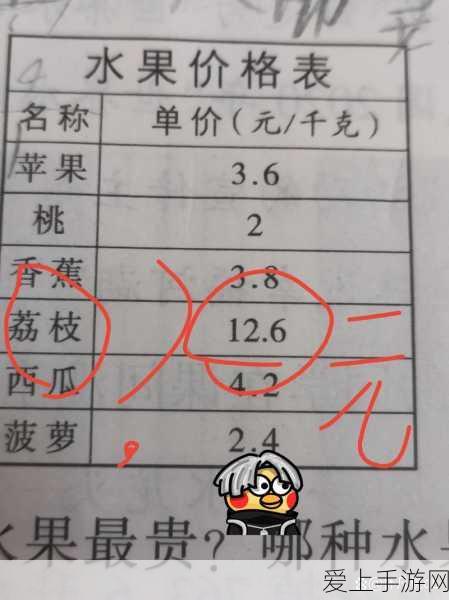 水果价格表
名称 单价(元/千克)
苹果 3.6
桃 2
香蕉 3.8
荔枝 12.6 元
西瓜 4.2
菠萝 2.4
水果最贵?哪种水
爱上手游网